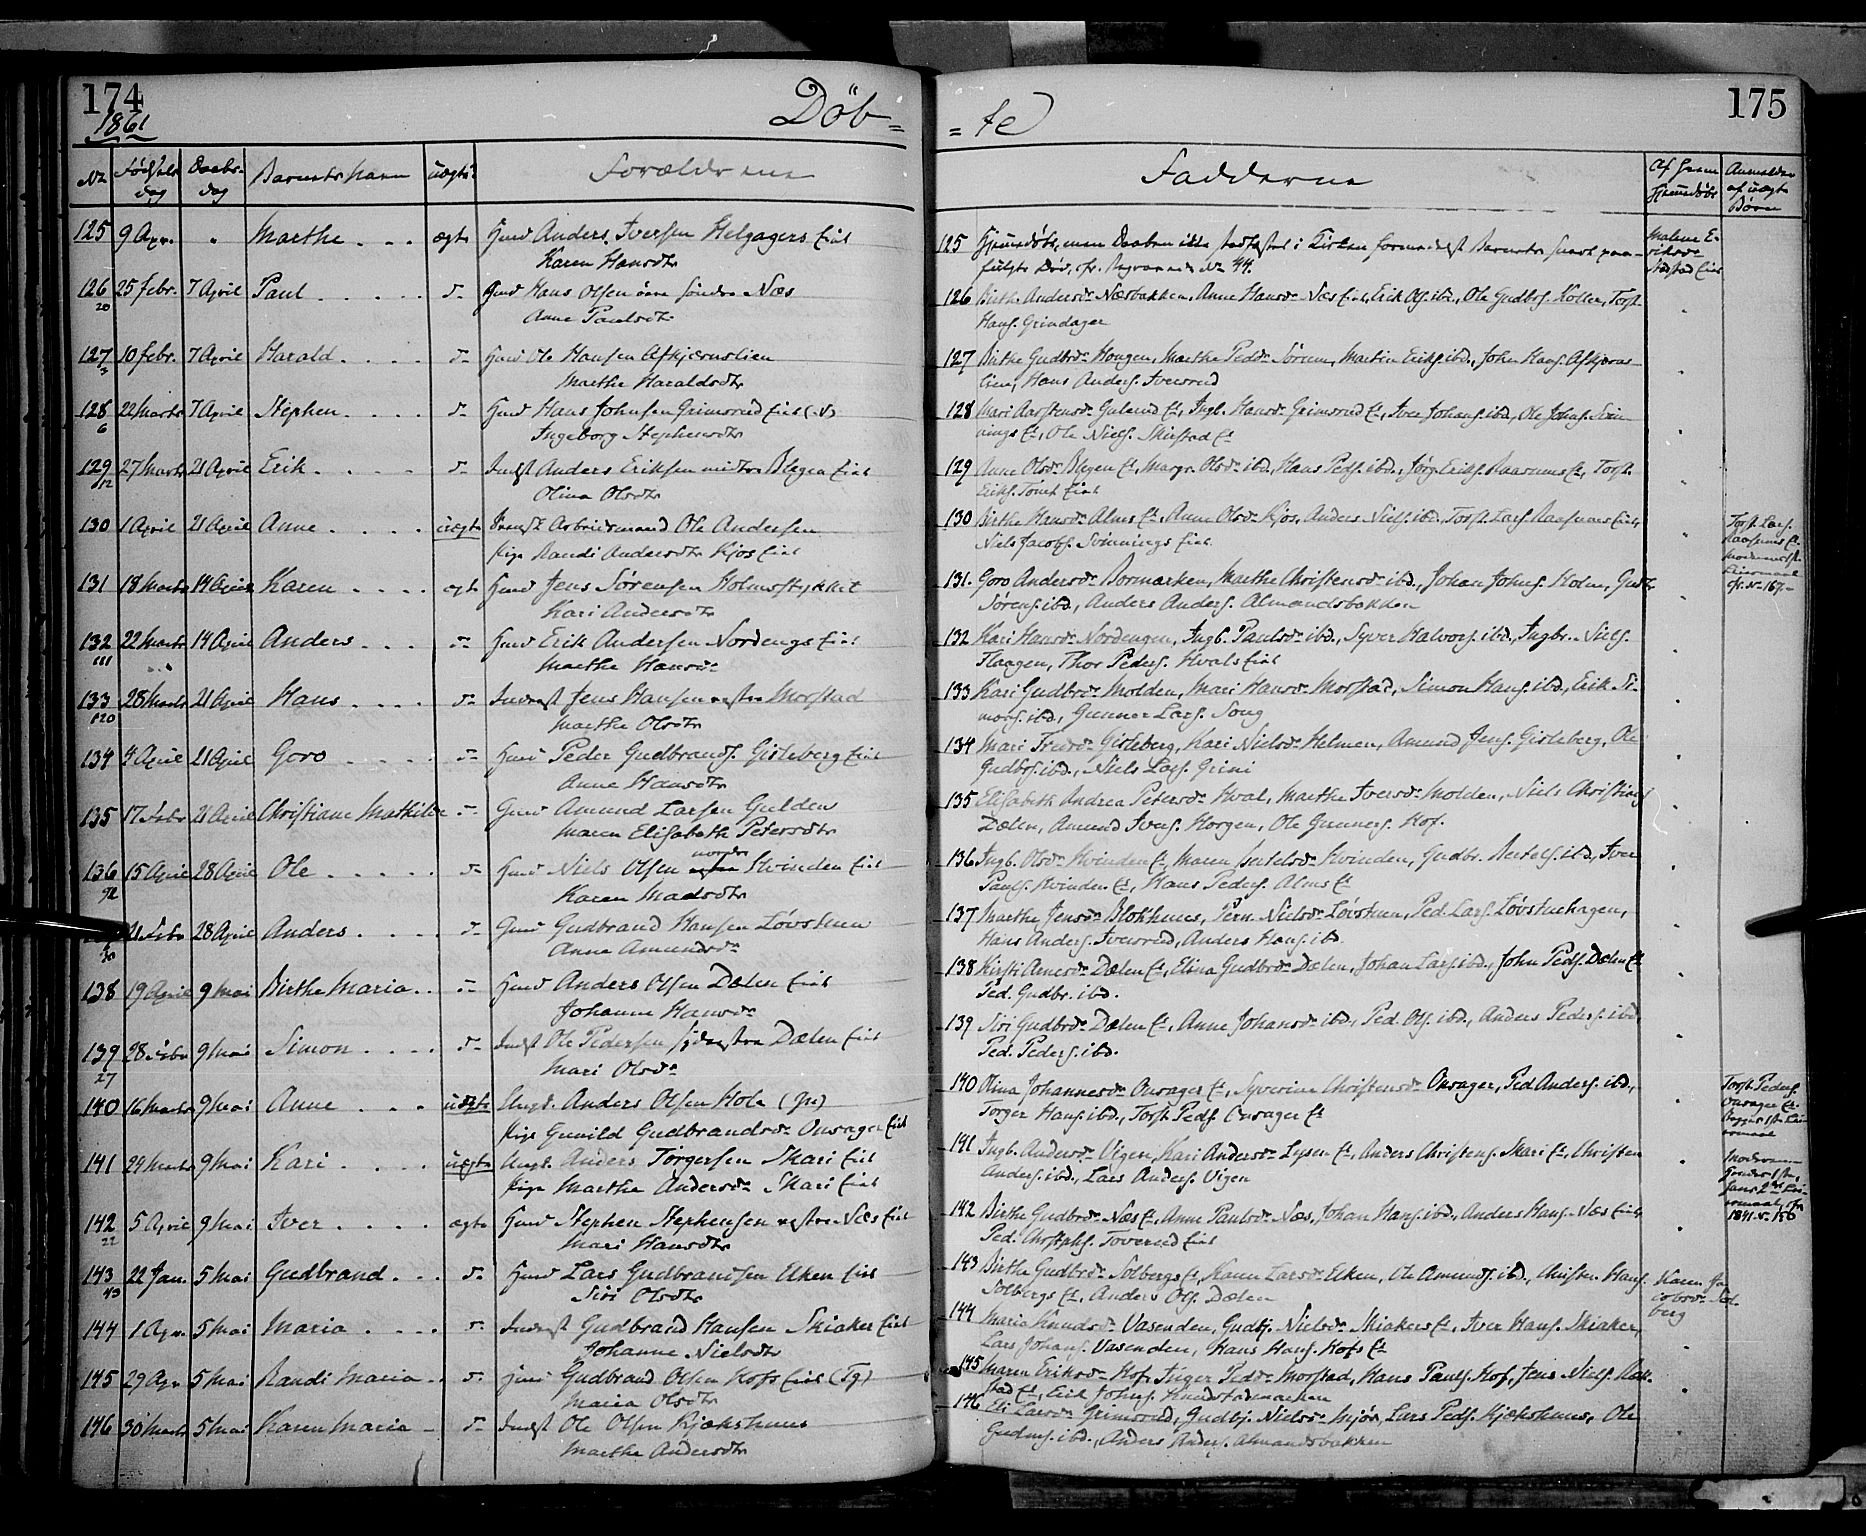 174
1861
Døb-
Nr
Fødsels
dag
Daabs-
dag
Barnets Navn
uægte
Forældrene
125 9 Apr. " Marthe . . . ægte Gmd Anders Iversen Helgagers Eiet
Karen Hansdtr
126 25 febr. 7 April Paul . . . . . d- Gmd Hans Olsen søndre Næs
20 Anne Paulsdtr
127 10 febr. 7 April Harald . . . . Hmd Ole Hansen Afkjærnslien
3 Marthe Haraldsdtr
128 22 Marts 7 April Stephen . . . . d- Hmd Hans Johnsen Grimsrud Eiet
6 Ingeborg Stephensdtr
129 27 Marts 21 April Erik . . . . d- Indst Anders Eriksen midtre Blegen Eiet
12 Olina Olsdtr
130 1 April 21 April Anne . . . . uægte Arbeidsmand Ole Andersen
Pige Randi Andersdtr Kjos Eiet
131 18 Marts 14 April Karen . . . . ægte Hmd Jens Sørensen Holmstykket
Kari Andersdtr
132 22 Marts 14 April Anders . . . d- Hmd Erik Andersen Nordengs Eiet
111 Marthe Hansdr
133 28 Marts 21 April Hans . . . . d- Inderst Jens Hansen vestre Morstad
120 Marthe Olsdtr
134 4 April 21 April Goro . . . . d- Hmd Peder Gudbrands. Gisleberg Eiet
Anne Hansdtr
135 17 Febr 21 April Christiane Mathilde d- Gmd Amund Larsen Gulden
Maren Elisabeth Petersdtr
136 15 April 28 April Ole . . . . . d- Hmd Niels Olsen nordre Hvinden Eiet
92 Karen Madsdtr
21 Febr 28 April Anders . . . . d- Gmd Gudbrand Hansen Løvstuen
30 Anne Amundsdr
138 19 April 9 Mai Birthe Maria . . d- Hmd Anders Olsen Dælen Eiet
Johanne Hansdr
139 28 Febr 9 Mai Simon . . . . d- Indst Ole Pedersen Dælen Eiet
27 Mari Olsdr
140 16 Marts 9 Mai Anne . . . uægte Ungk. Anders Olsen Hole
Pige Gunild Gudbrandsdr Onsager Eiet
141 24 Marts 9 Mai Kari . . . . uægte Ungk. Anders Torgersen Skari Eiet
Pige Marthe Andersdr Skari Eiet
142 5 April 9 Mai Iver . . . . ægte Hmd Stephen Stephensen vestre Næs Eiet
22 Mari Hansdtr
143 22 Jan. 5 Mai Gudbrand . . . d- Hmd Lars Gudbrandsen Elken Eiet
43 Siri Olsdtr
144 1 Apr. 5 Mai Maria . . . . d- Inderst Gudbrand Hansen Skiaker Eiet
Johanne Nielsdtr
145 29 Apr 5 Mai Randi Maria . . d- Hmd Gudbrand Olsen Hofs Eiet
Maria Olsdtr
146 30 Marts 5 Mai Karen Maria - d- Indst Ole Olsen Kjækshuus
Marthe Andersdtr
175
=te
Fadderne
Af hvem
hjemmedøbt
Anmelder
af uægte
Børn
125 Hjemmedøbt, men Daaben ikke stadfæstet i Kirken formedelst Barnets snart paa-
fulgte Død, cfr. Begravede Nr 44.
Malene E-
riksdr
Eiet
126 Birthe Andersdr Næsbakken, Anne Hansdr Næs Eiet, Erik Ols. ibd., Ole Gudbrs. Kollen, Torst.
Hans. Grindager
127 Birthe Gudbrdr Haugen, Marthe Pedsdr Sørum, Martin Eriks. ibd., John Hans. Afkjærns
lien, Hans Anders. Iversrud
128 Mari Aarstensdr Gulerud Et, Ingb. Hansdr Grimsrud Et, Iver Johans. ibd, Ole Johns. Svin
nings Et, Ole Niels. Skiestad Et
129 Anne Olsdr Blegen Et, Margr. Olsdr ibd., Hans Peds. ibd., Jørg. Eriks. Raasums Et, Torst.
Eriks. Tomt Eiet
130 Birthe Hansdr Alms Et, Anne Olsdr Kjos, Anders Niels. ibd., Torst. Lars. Raasums Eiet,
Niels Jacobs. Svinnings Eiet.
Torst. Lars.
Raasums Et
131. Goro Andersdr Bormarken, Marthe Christensdr ibd., Johan Johns. Holm, Gudbr
Sørens. ibd., Anders Anders. Almandsbakken
132 Kari Hansdr Nordengen, Ingb. Paulsdr ibd., Syver Halvors. ibd., Ingbr. Niels.
Flaagen, Thor Peders. Hvals Eiet
133 Kari Gudbrdr Molden, Mari Hansdr Morstad, Simon Hans. ibd., Erik Si-
mons. ibd., Gunner Lars. Song
134 Mari Iversdr Gisleberg, Kari Nielsdr Helmen, Amund Jens. Gisleberg, Ole
Gudbrs. ibd., Niels Lars. Grini
135 Elisabeth Andrea Petersdr Hval, Marthe Iversdr Molden, Niels Christians
Dælen, Amund Ivers. Horgen, Ole Gunners. Hof.
136 Ingb. Olsdr Hvinden Et, Maren Bertelsdr Hvinden, Gudbr. Bertels. ibd., Iver
Pauls. Hvinden Et, Hans Peders. Alms Et
137 Marthe Jensdr Blokhuus, Pern. Nielsdr Løvstuen, Ped. Lars. Løvstuehagen,
Hans Anders. Iversrud, Anders Hans. ibd
138 Kirsti Arnesdr Dælen Et, Elina Gudbrdr Dælen, Johan Lars. ibd., John Peds. Dælen Et
Ped. Gudbr. ibd.
139 Siri Gudbrdr Dælen Et, Anne Johansdr ibd., Ped. Ols. ibd., Anders Peders. ibd
Ped. Peders. ibd.
140 Olina Johannesdr Onsager Et, Syverine Christensdr Onsager, Ped Anders. ibd.,
Torger Hans. ibd., Torst. Peds. Onsager Et
Torst. Peders.
Onsager Et.
141 Ingb. Andersdr Vigen, Kari Andersdr Lysen Et, Anders Christens. Skari Et, Christen
Anders. ibd., Lars Anders. Vigen
142 Birthe Gudbrdr Næs Et, Anne Paulsdr Næs, Johan Hans. ibd., Anders Hans. Næs Eiet,
Ped. Christphs. Toverud Eiet
143 Birthe Gudbrdr Solbergs Et, Karen Larsdr Elken, Ole Amunds. ibd., Christen Hans.
Solbergs Et, Anders Ols. Dælen
Karen Ja-
cobsdr Sol-
berg
144 Maria Knudsdr Vasenden, Gudbj. Nielsdr Skiakers Et, Iver Hans. Skiaker,
Lars Johans. Vasenden, Hans Hans. Hofs Et
145 Maren Eriksdr Hof, Inger Pedsdr Morstad, Hans Pauls. Hof, Jens Niels. Rak-
stad Et, Erik Johns.
146. Eli Larsdr Grimsrud, Gudbj. Nielsdr Mjør, Lars Peds. Kjækshuus, Ole
Gudms. ibd., Anders Anders. Almandsbakken